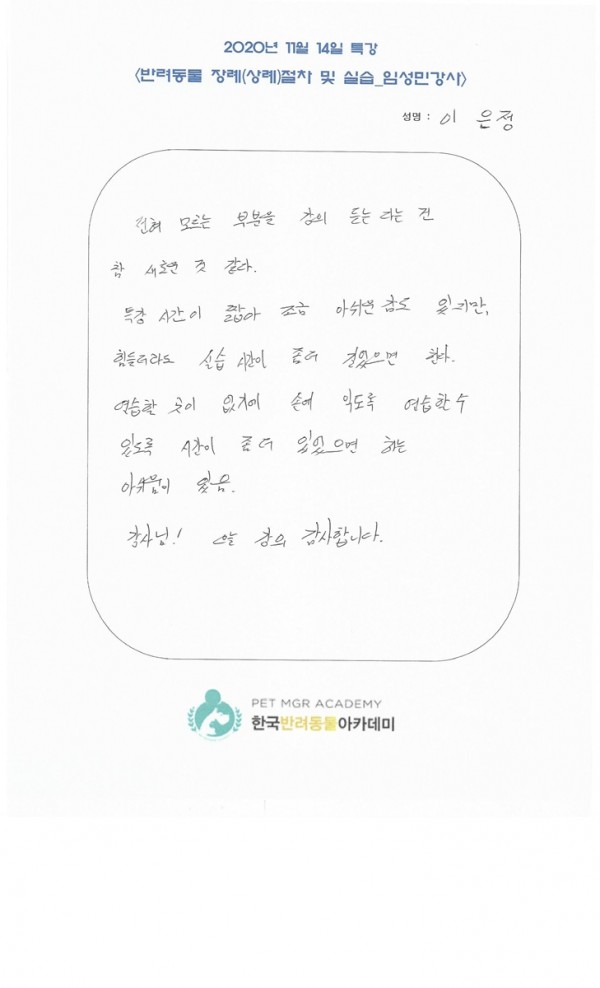 2020년 11월 14일 특강
<반려동물 장례(상례)절차 및 실습_임성민강사>
성명 : 이 은정
전혀 모르는 부분을 강의 듣는 다는 건
참 새로운 것 같다.
특강 시간이 짧아 조금 아쉬운 감도 있지만,
힘들더라도 실습 시간이 좀더 길었으면 한다.
연습할 곳이 없기에 손에 익도록 연습할 수
있도록 시간이 좀 더 있었으면 하는
아쉬움이 있음.
강사님! 오늘 강의 감사합니다.
PET MGR ACADEMY
한국반려동물아카데미